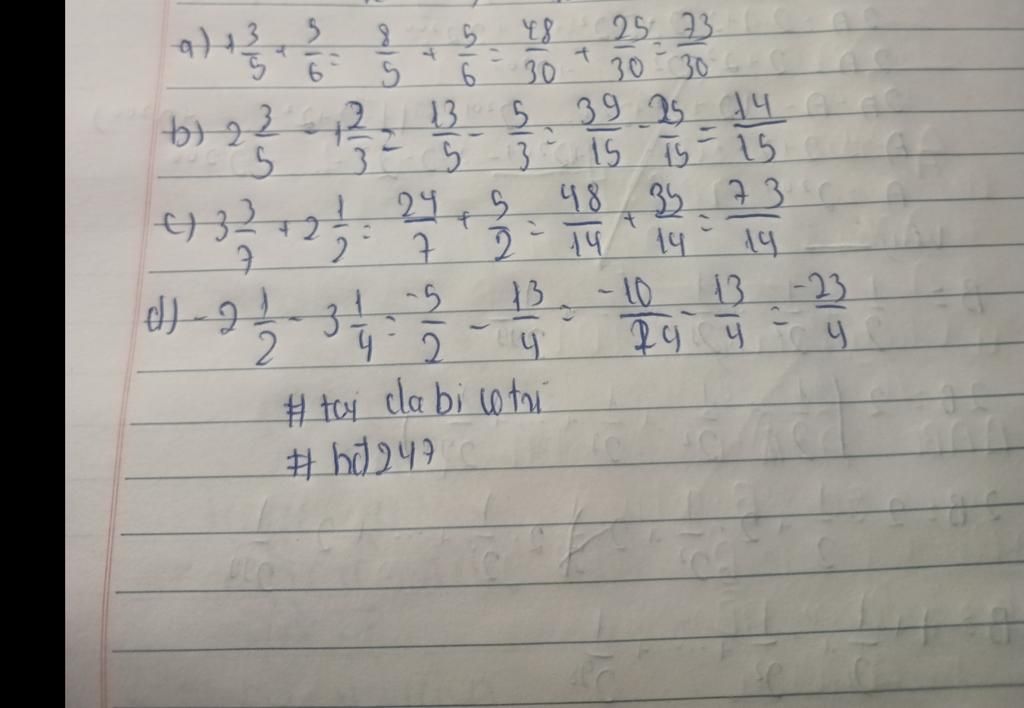 a) 1 3/5 + 5/6 = 8/5 + 5/6 = 48/30 + 25/30 = 73/30
b) 2 3/5 - 1 2/3 = 13/5 - 5/3 = 39/15 - 25/15 = 14/15
c) 3 3/7 + 2 1/2 = 24/7 + 5/2 = 48/14 + 35/14 = 73/14
d) - 2 1/2 - 3 1/4 = -5/2 - 13/4 = -10/4 - 13/4 = -23/4
# tơi
# hd247